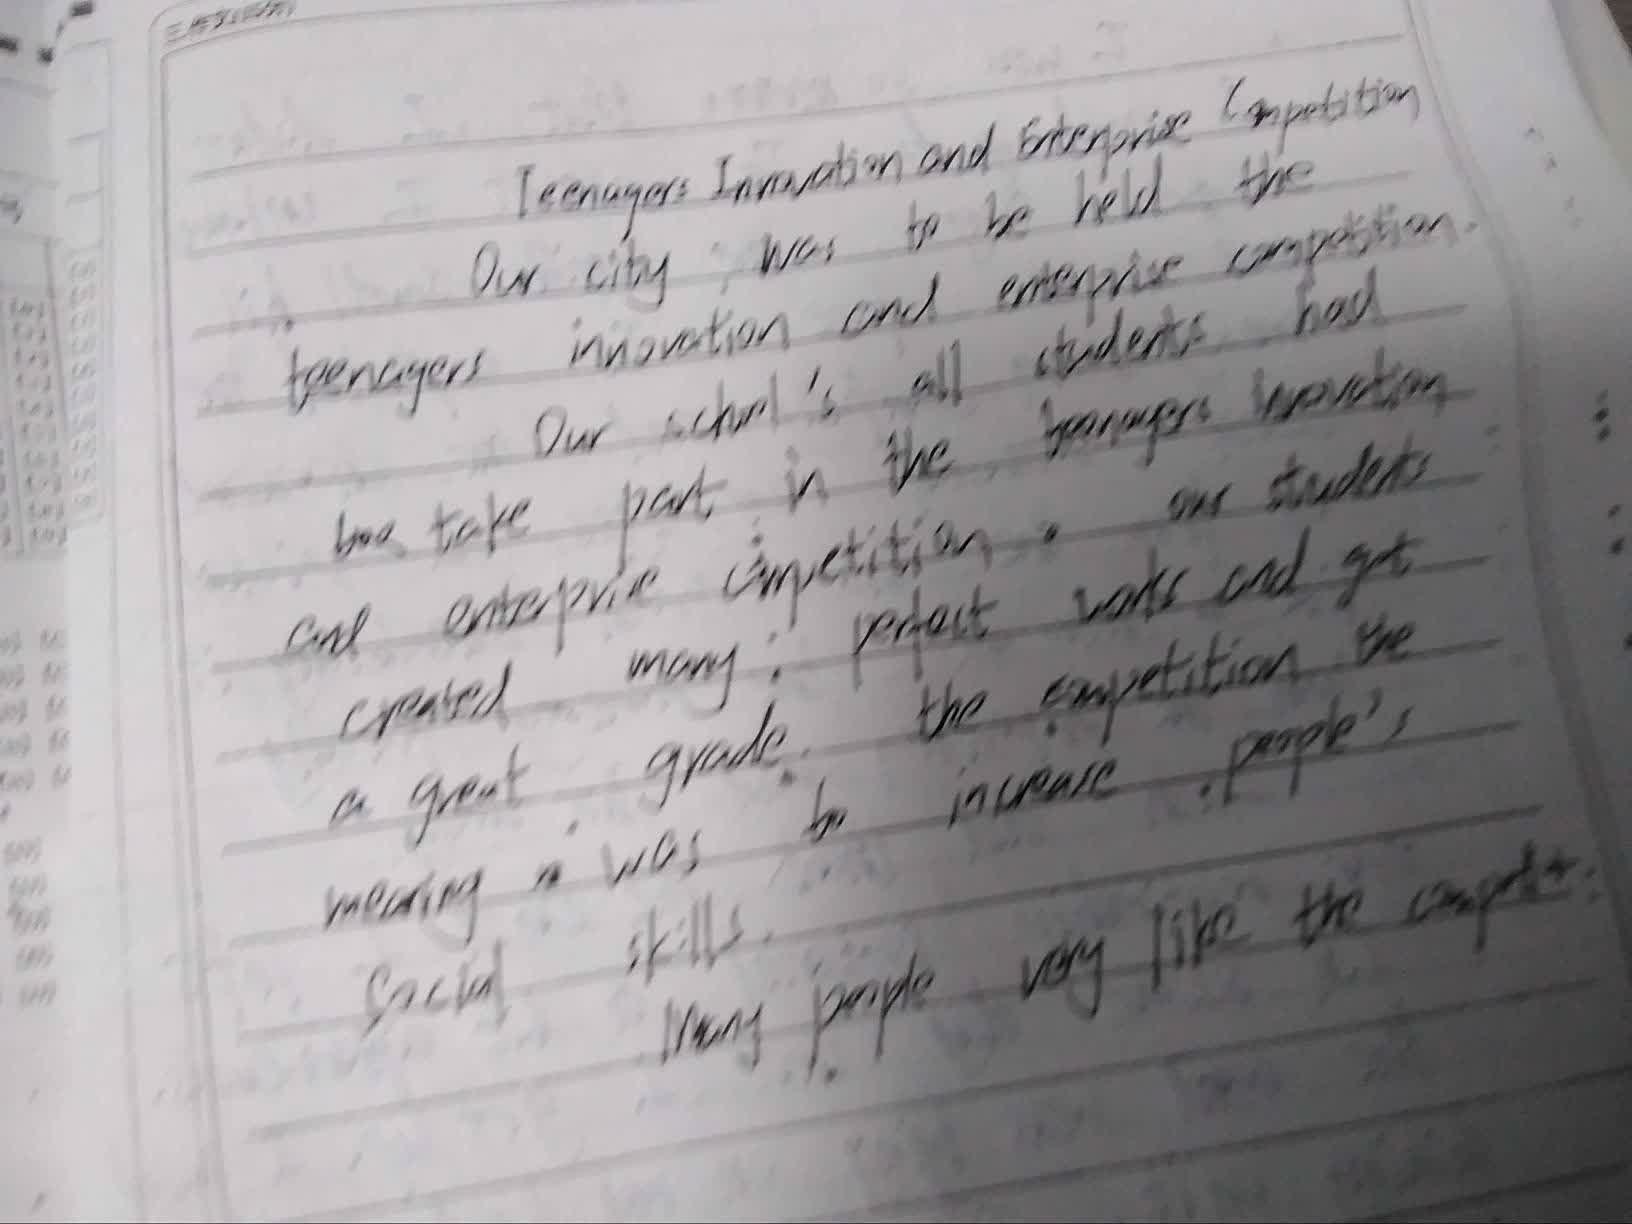 Teenagers Innovation and Enterprise Competition
Our city was to be held the
teenagers innovation and enterprise competition.
Our school's all students had
take part in the teenagers innovation
and enterprise competition. our students
created many perfect works and got
a great grade. the competition the
meaning was to increase people's
Social skills.
Many people very like the